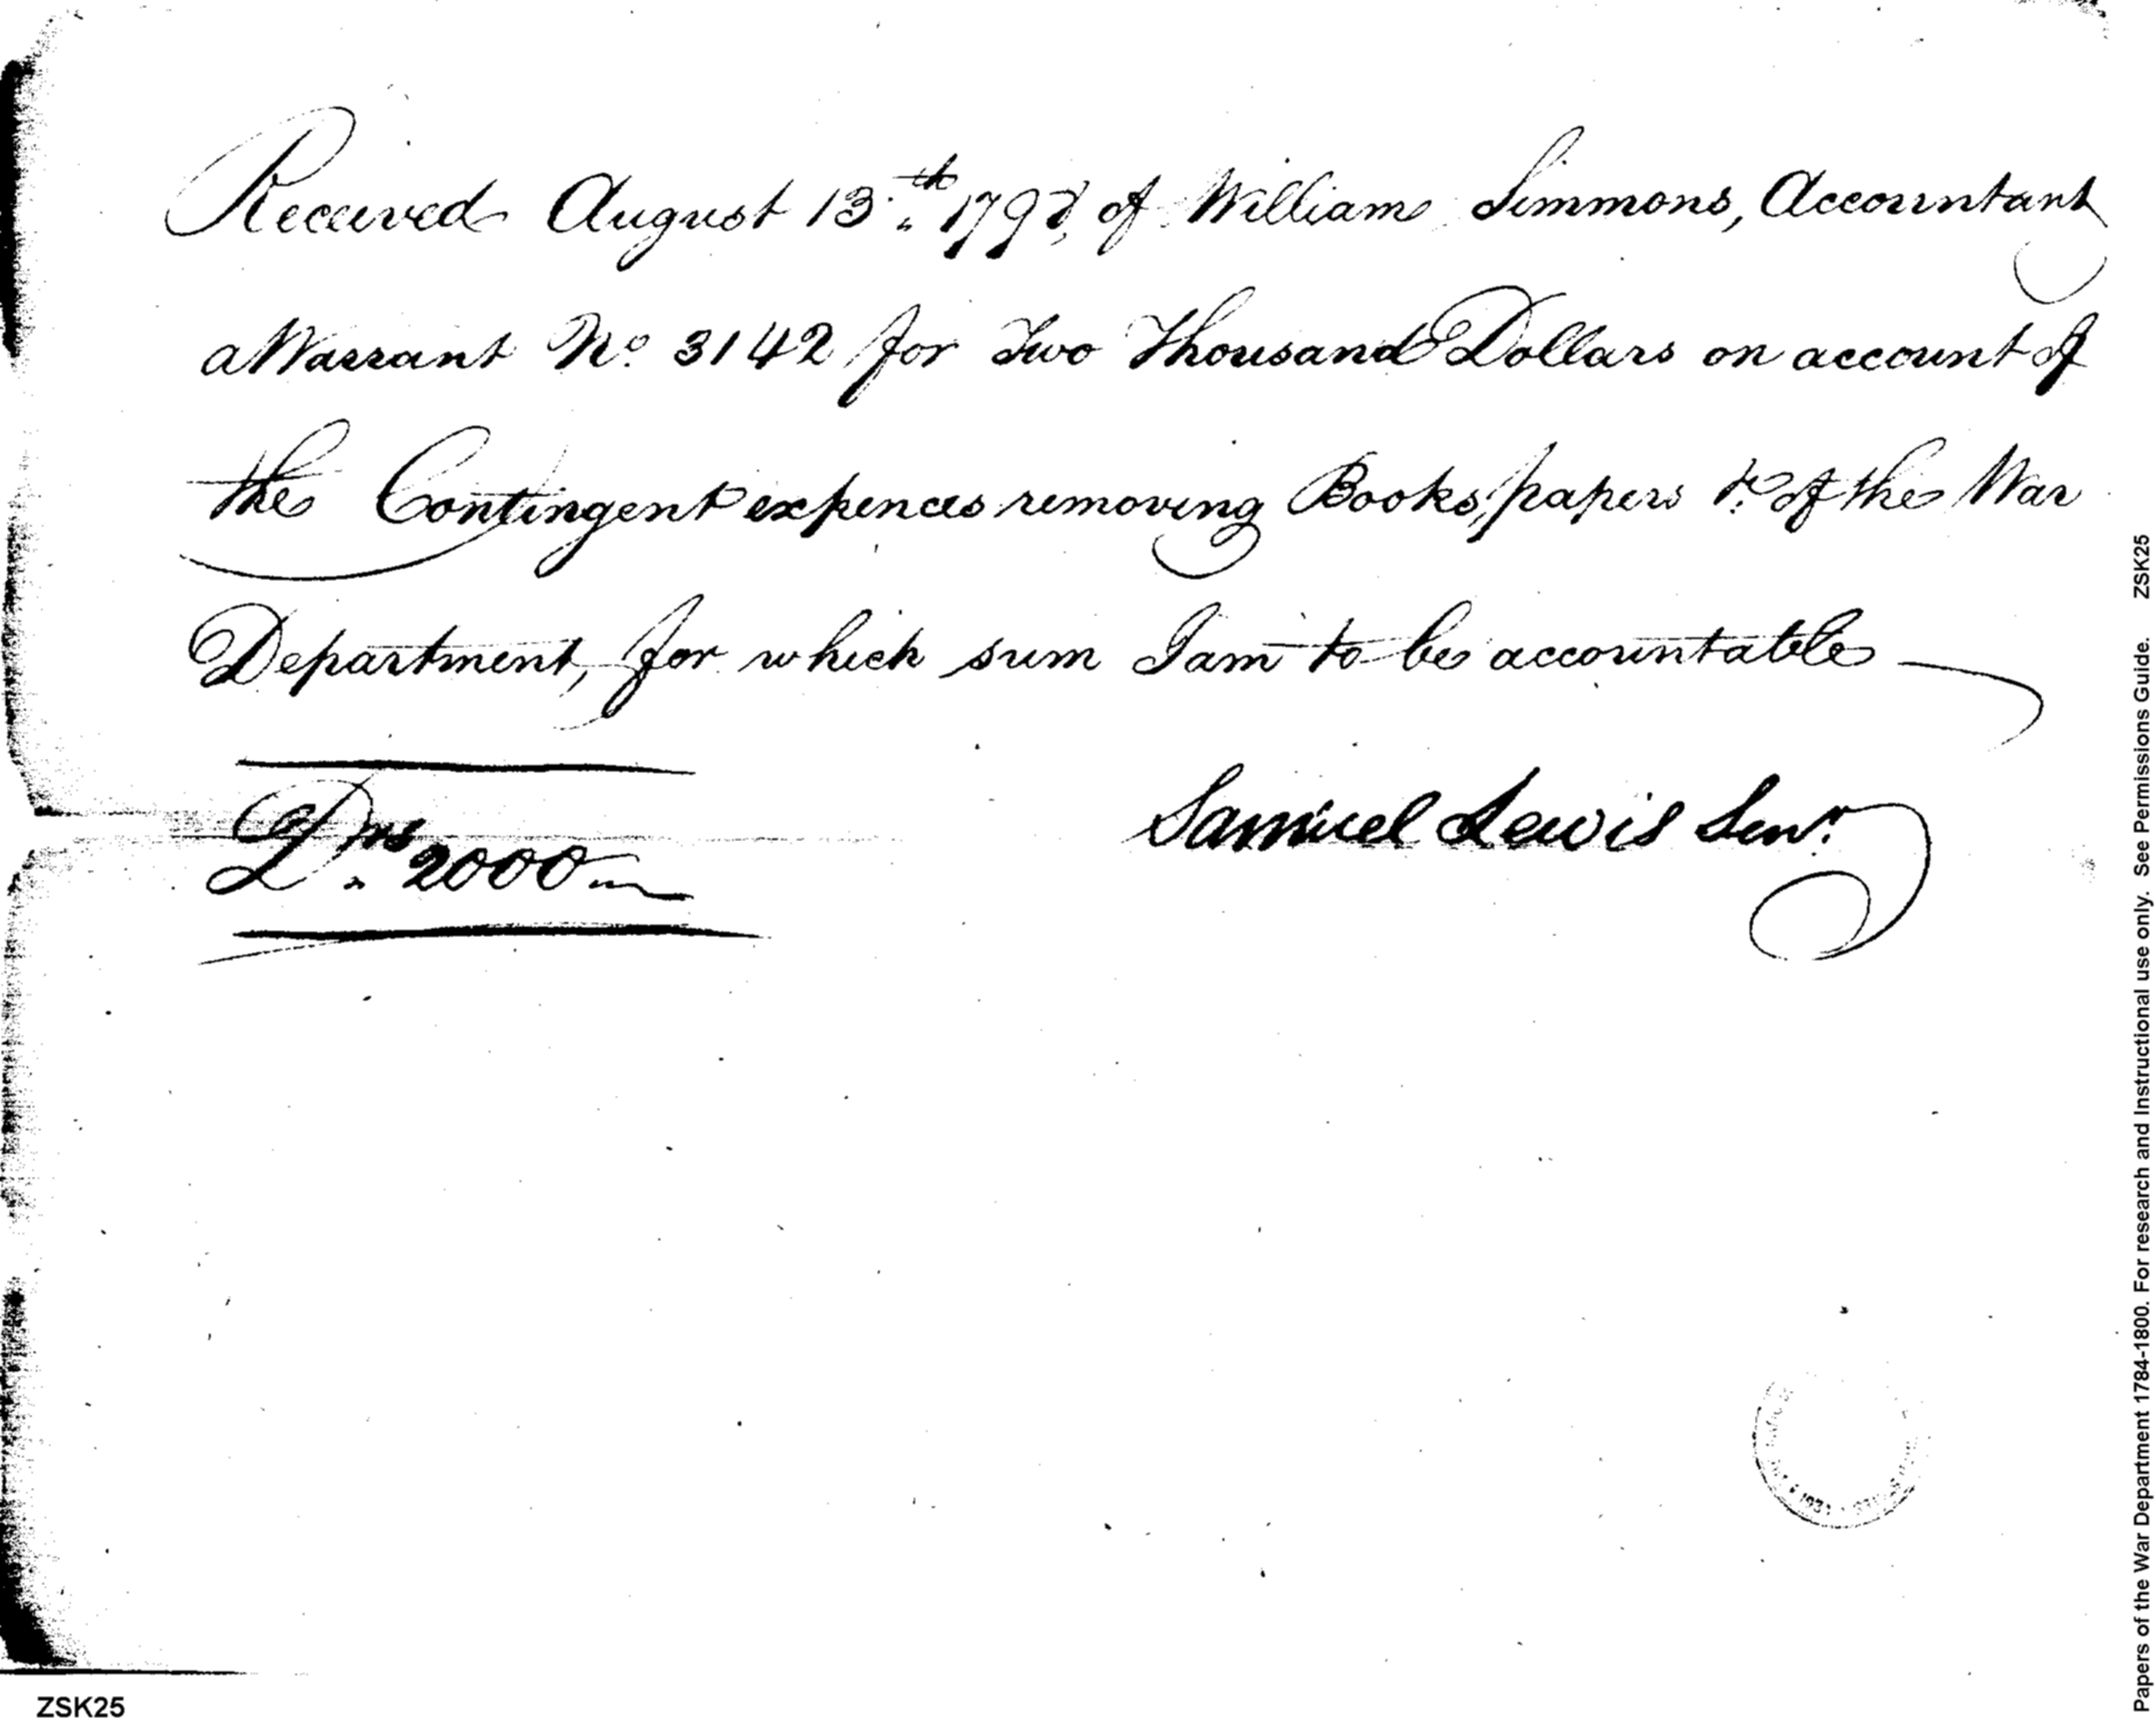 Received August 13th 1798, of William Simmons, Accountant
a Warrant No. 3142 for Two Thousand Dollars on account of
the Contingent expences removing Books, papers &c. of the War
Department, for which sum I am to be accountable
Drs. 2000
Samuel Lewis Senr.
ZSK25
Papers of the War Department 1784-1800. For research and Instructional use only. See Permissions Guide. ZSK25